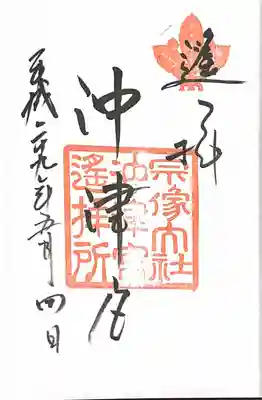 遙拝
沖津宮
平成二十九年五月四日
宗像大社
沖津宮
遙拝所